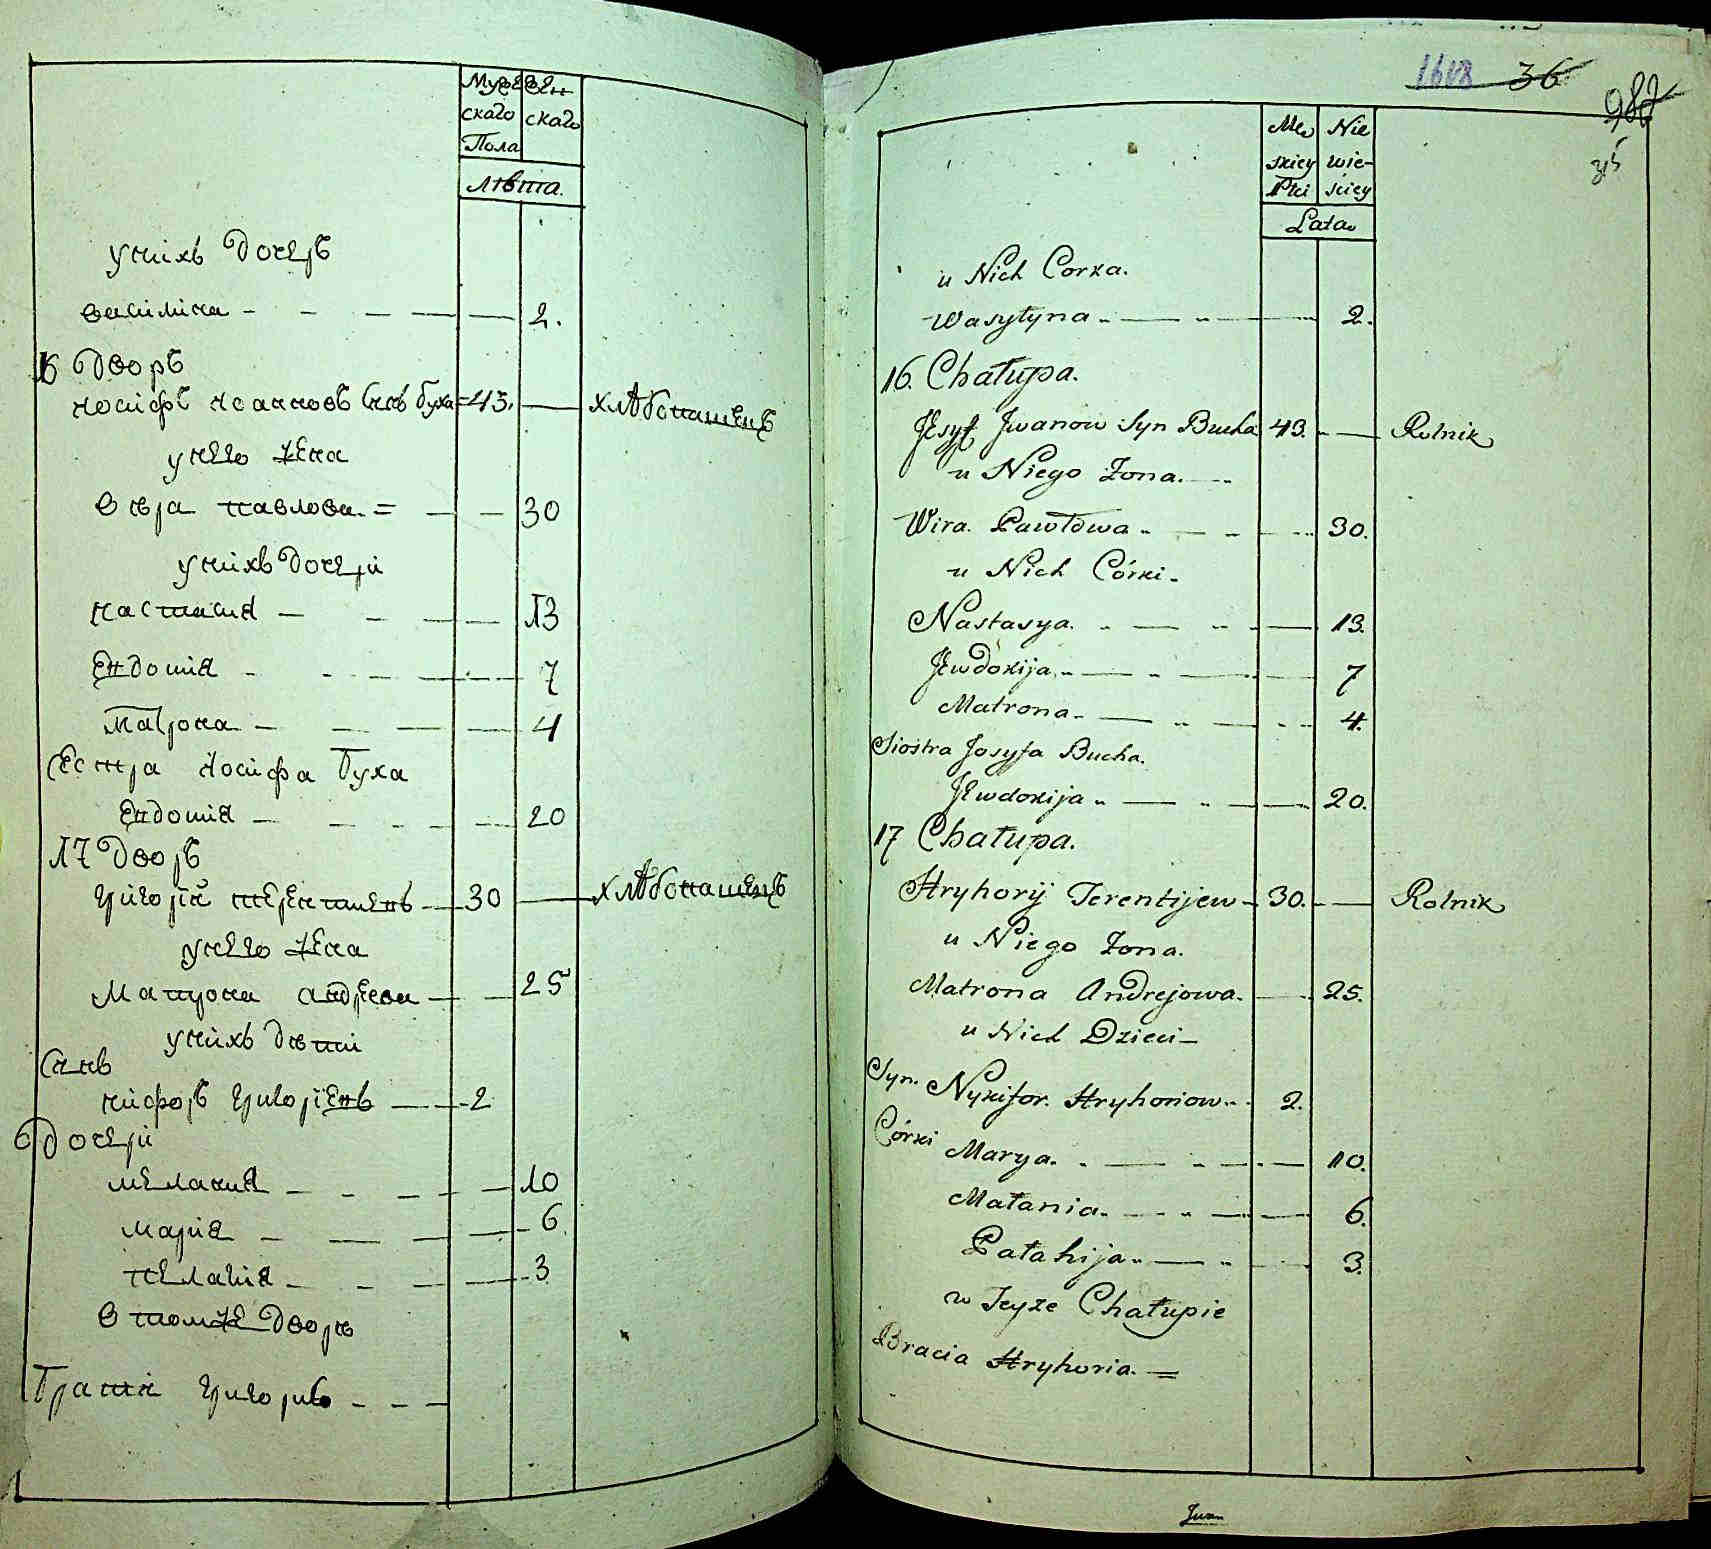 Мужескаго Пола
Женскаго
лѣта.
у нихъ дочерь
василина 2.
16 дворъ
иосифъ иоанновъ снъ буха 43. хлѣбопашецъ
у него жена
вѣра павлова 30
у нихъ дочери
настасия 13
евдокия 7
матрона 4
Сестра иосифа буха
евдокия 20
17 дворъ
григорій терентиевъ 30 хлѣбопашецъ
у него жена
матрона андреева 25
у нихъ дѣти
Снъ
никифоръ григоріевъ 2
дочери
мелания 10
мария 6
пелагия 3
в томже дворѣ
брати григорию
1608 36
982
35
Męskiey Płci
Niewieściey
Lata
u Nich Corka.
Wasyłyna 2.
16. Chałupa.
Jesyf Jwanow Syn Bucha 43. Rolnik
u Niego Zona.
Wira Pawłowa 30.
u Nich Córki
Nastasya. 13.
Jewdokija 7
Matrona 4.
Siostra Josyfa Bucha.
Jewdokija 20.
17 Chałupa.
Hryhorij Terentijew 30. Rolnik
u Niego Zona.
Matrona Andrejowa. 25.
u Nich Dzieci
Syn. Nykifor Hryhoriow 2.
Córki Marya. 10.
Małania 6.
Pałahija 3.
w Teyże Chałupie
Bracia Hryhoria.
Jwan